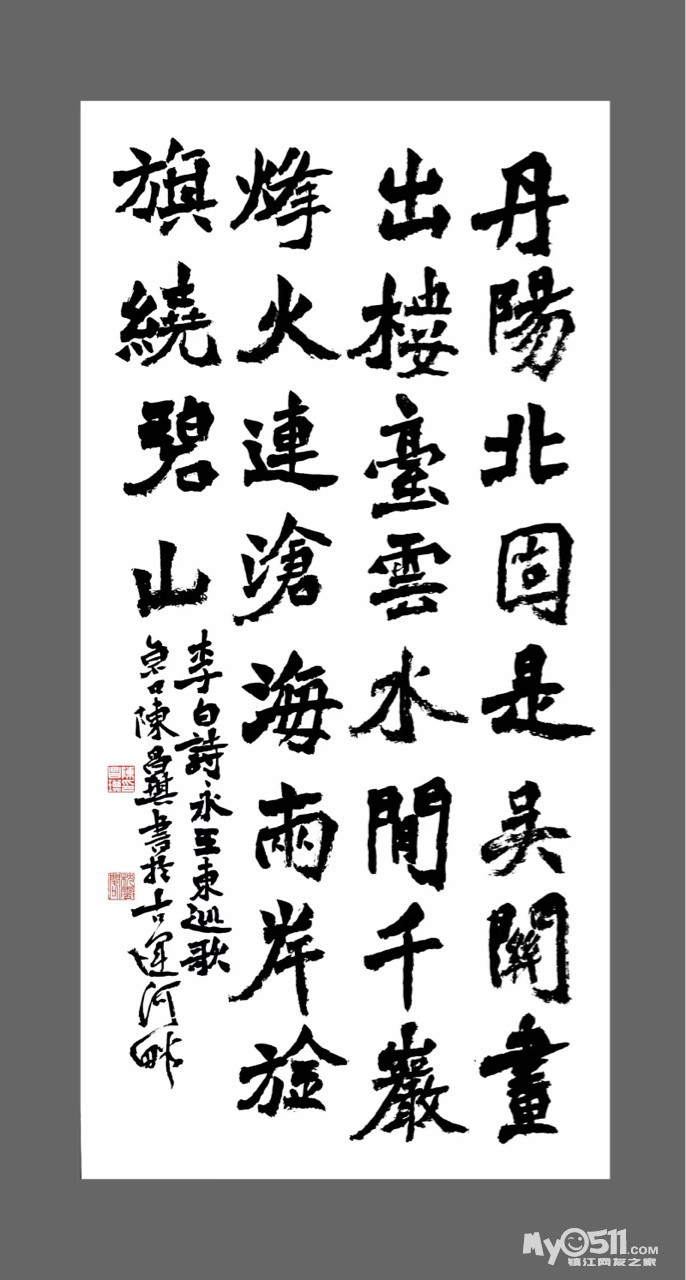 丹陽北固是吳關畫
出樓臺雲水閒千巖
烽火連滄海兩岸旌
旗繞碧山
李白詩永王東巡歌
京口陳昌書於古運河畔
My0511.com
镇江网友之家